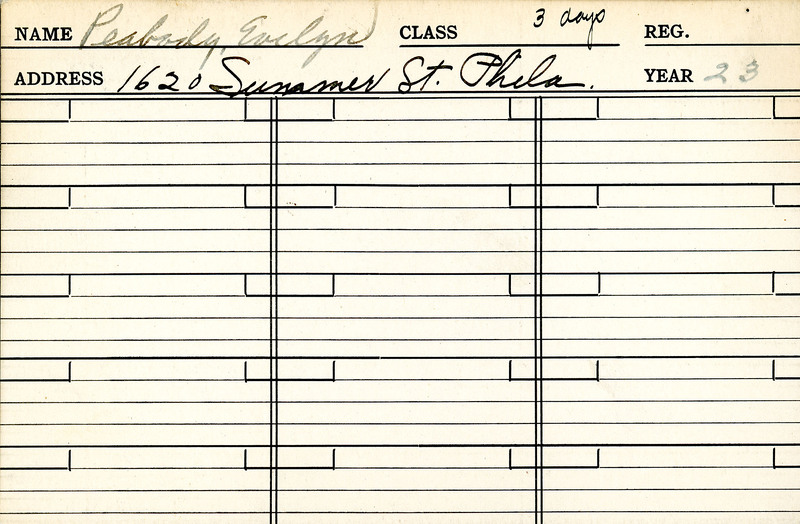 NAME Peabody, Evelyn CLASS 3 days REG.
ADDRESS 1620 Summer St. Phila. YEAR 23